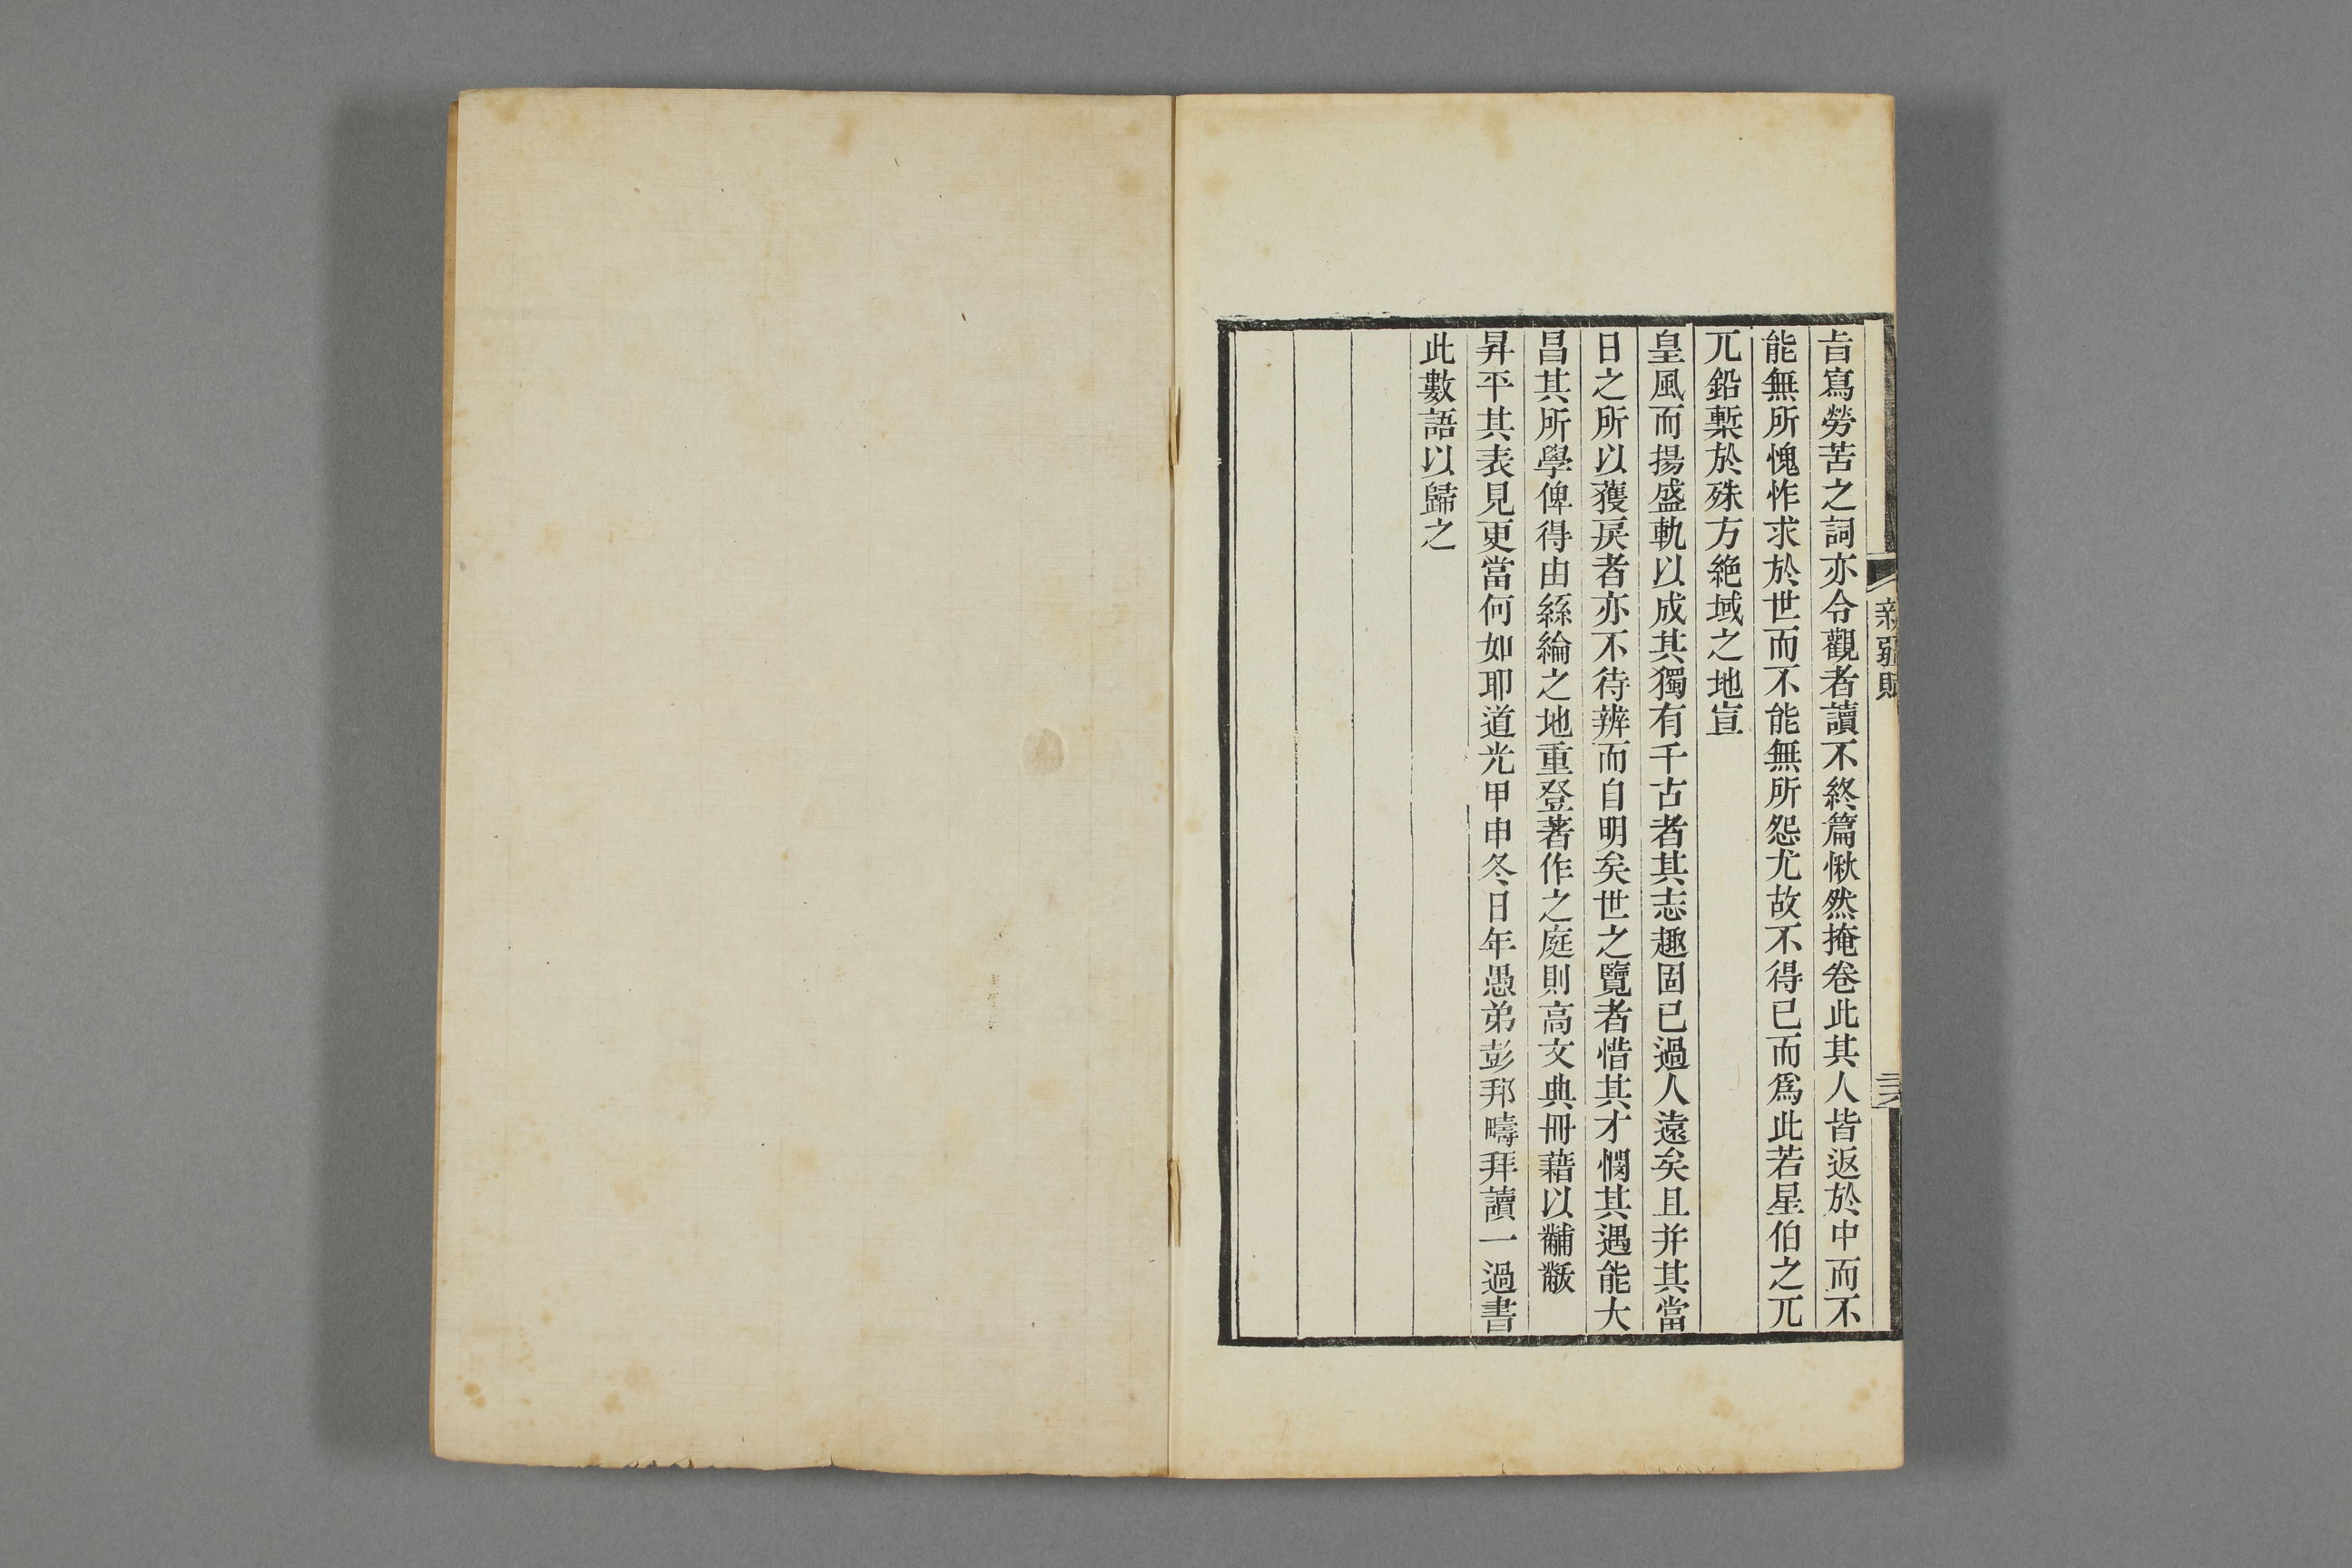 新疆賦
三六
旨寫勞苦之詞亦令觀者讀不終篇愀然掩卷此其人皆返於中而不
能無所愧怍求於世而不能無所怨尤故不得已而爲此若星伯之兀
兀鉛槧於殊方絶域之地亶
皇風而揚盛軌以成其獨有千古者其志趣固已過人遠矣且并其當
日之所以獲戾者亦不待辨而自明矣世之覽者惜其才憫其遇能大
昌其所學俾得由絲綸之地重登著作之庭則高文典冊藉以黼黻
昇平其表見更當何如耶道光甲申冬日年愚弟彭邦疇拜讀一過書
此數語以歸之